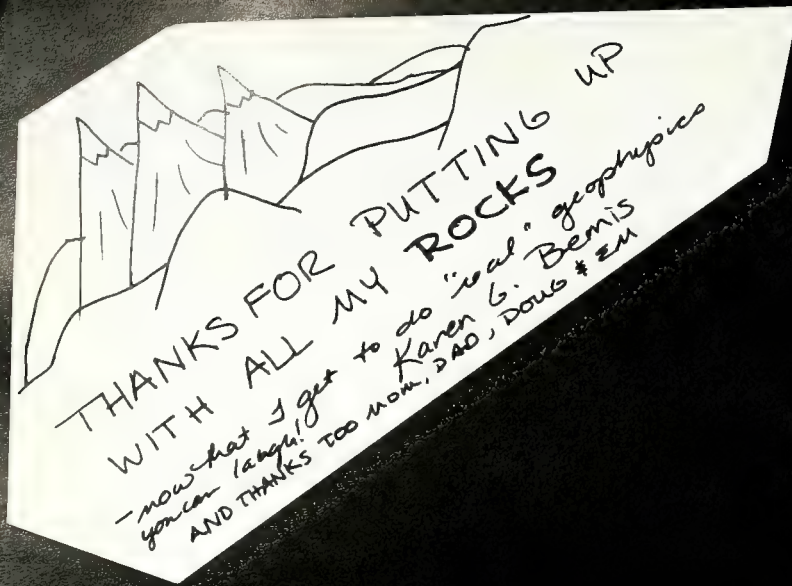 THANKS FOR PUTTING UP
WITH ALL MY ROCKS
- now that I get to do "real" geophysics
you can laugh! Karen G. Bemis
AND THANKS TOO MOM, DAD, DOUG & EM